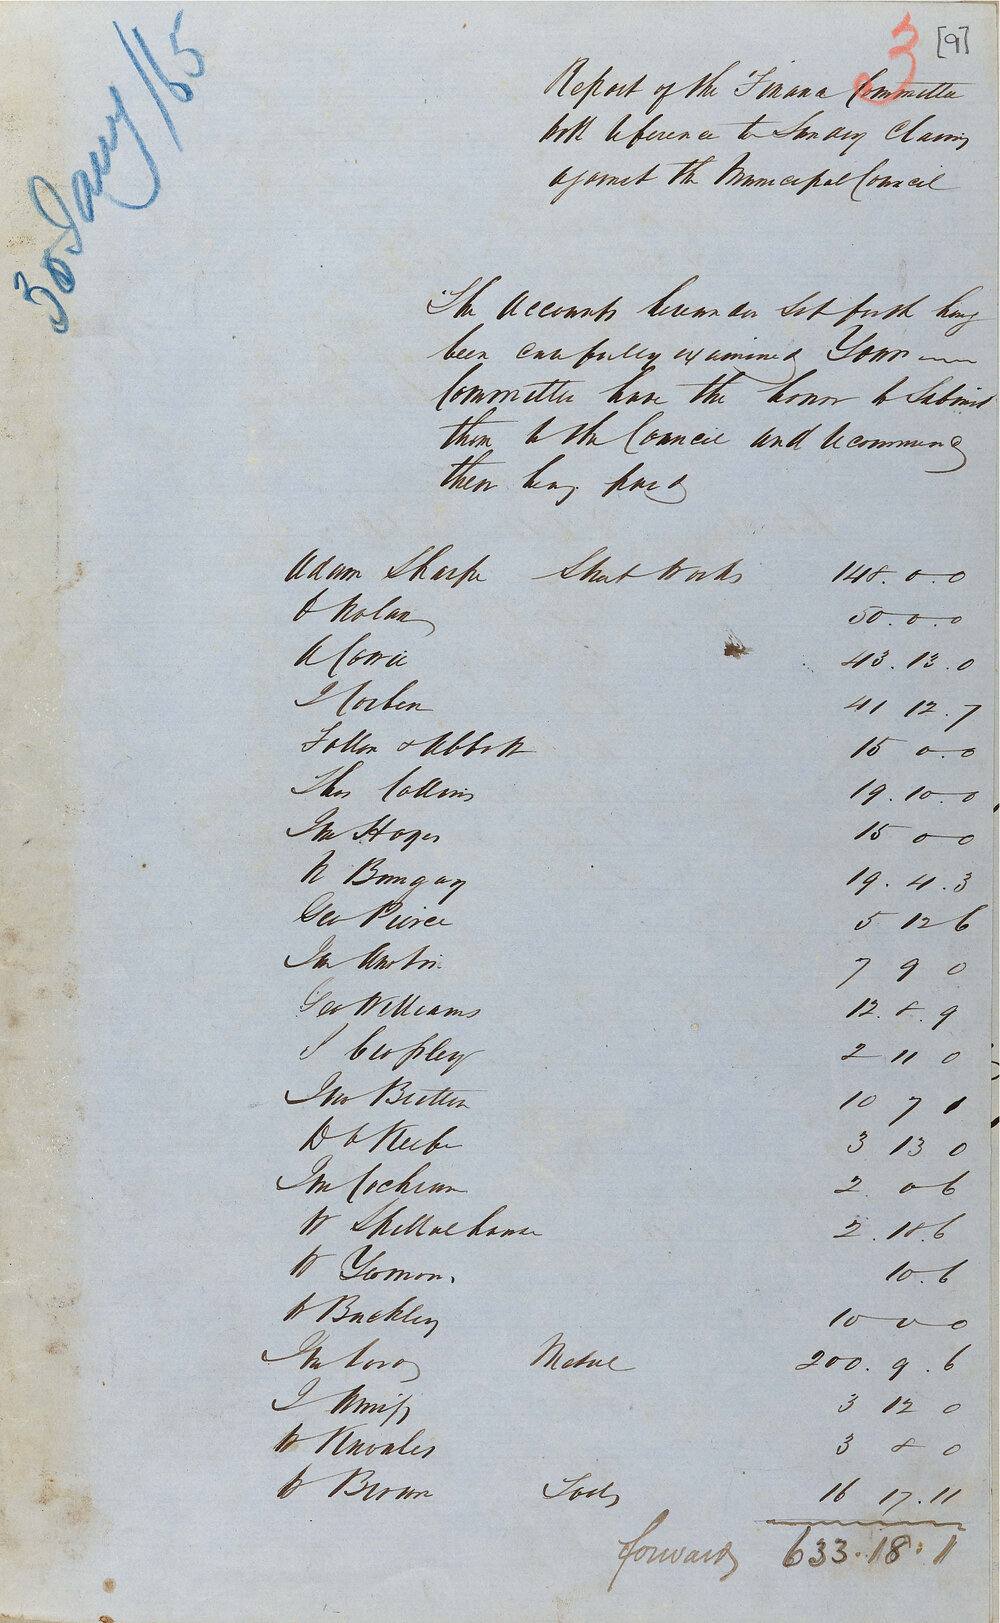 30 Jany/65
3
[9]
Report of the Finance Committee
with reference to Sundry Claims
against the Municipal Council
The Accounts hereunder Set forth having
been carefully examined Your
Committee have the honor to Submit
them to the Council and recommend
them being paid
Adam Sharpe Street Works 148. 0. 0
J Nolan 50. 0. 0
A Cowie 43. 13. 0
J Corben 41 12. 7
Fallon & Abbott 15 0. 0
Thos Collins 19. 10. 0
Jno Hayes 15 0 0
N Bungay 19. 4. 3
Geo Pierce 5 12 6
Jno 7 9 0
Geo Williams 12. 8. 9
J Cropley 2 11 0
Jno Britten 10 7 1
D O Keefe 3 13 0
Jno Cochran 2 0 6
W 2. 18. 6
W Yeoman 10. 6
W Buckley 10 0 0
Jno Metal 200. 9. 6
J 3 12 0
W Knowles 3 8 0
W Brown Tools 16 17. 11
forward 633. 18. 1